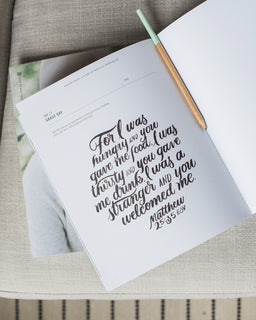 GRACE DAY
For I was
hungry AND you
gave me food, I was
thirsty AND you gave
me drink, I was a
stranger AND you
welcomed me
Matthew
25:35 ESV